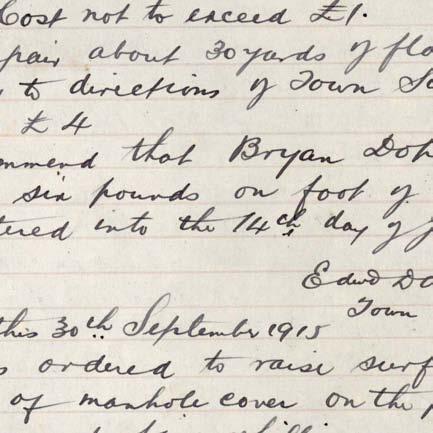 Cost not to exceed £1.
pair about 30 yards of fla
s to directions of Town Su
£4
mmend that Bryan Doh
six pounds on foot of
tered into the 14th day of J
Edwd Do
Town
this 30th September 1915
s ordered to raise surf
of manhole cover on the p